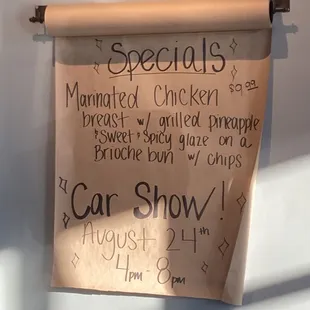 Specials
Marinated Chicken $9.99
breast w/ grilled pineapple
& Sweet & Spicy glaze on a
Brioche bun w/ chips
Car Show!
August 24th
4pm - 8pm